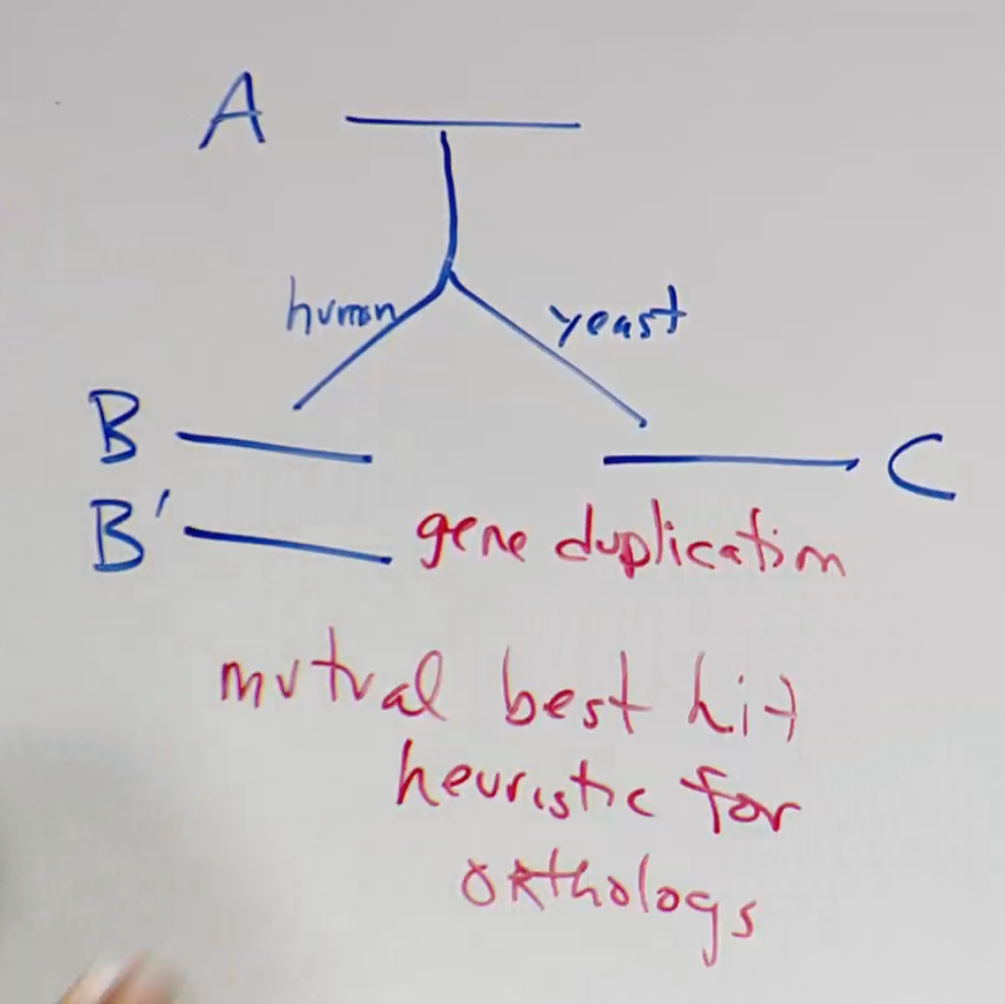 A
human yeast
B C
B' gene duplication
mutual best hit
heuristic for
orthologs